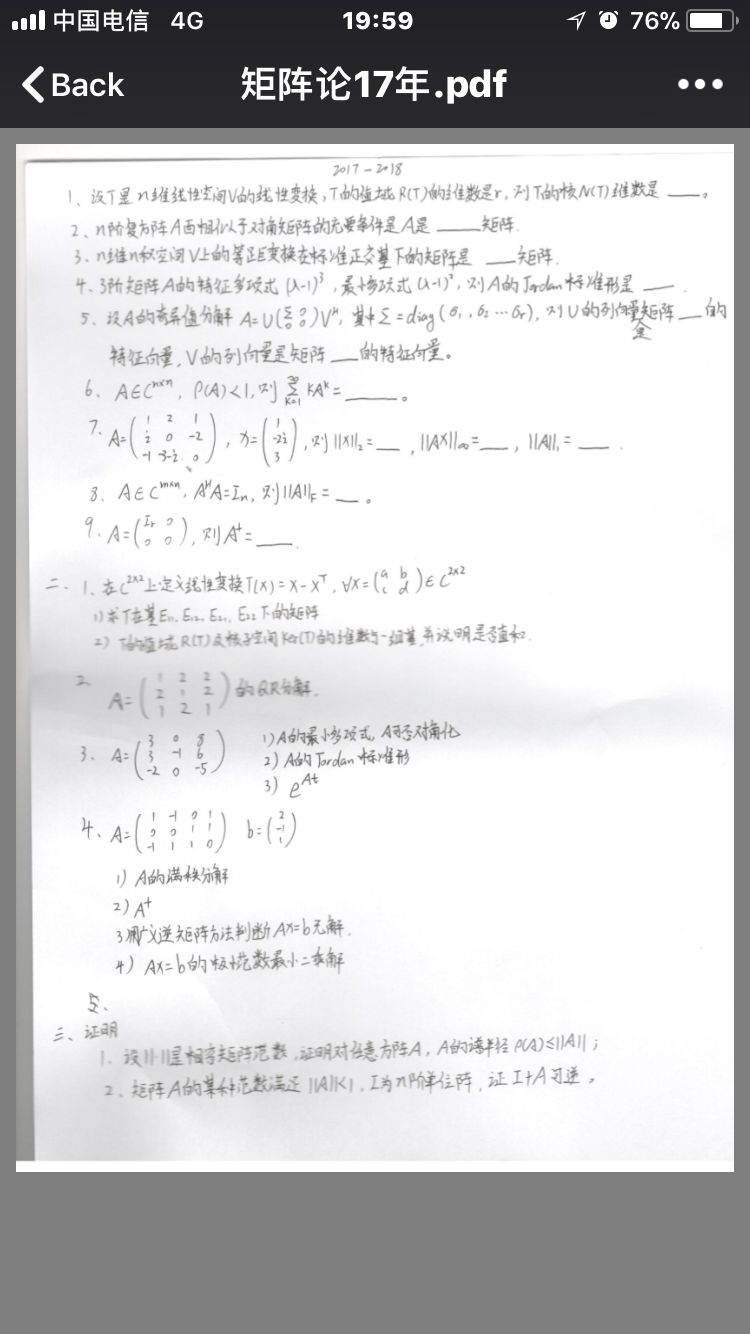 中国电信 4G 19:59 76%
Back 矩阵论17年.pdf
2017-2018
1、设T是n维线性空间V的线性变换,T的值域R(T)的维数是r,则T的核N(T)维数是 ___。
2、n阶复方阵A酉相似于对角矩阵的充要条件是A是 ___ 矩阵.
3、n维内积空间V上的等距变换在标准正交基下的矩阵是 ___ 矩阵.
4、3阶矩阵A的特征多项式 (λ-1)³, 最小多项式 (λ-1)², 则A的Jordan标准形是 ___.
5、设A的奇异值分解 A=U(Σ 0; 0 0)Vᴴ, 其中Σ=diag(σ₁,σ₂…σr), 则U的列向量是矩阵 ___ 的
特征向量, V的列向量是矩阵 ___ 的特征向量。
6、A∈Cⁿˣⁿ, ρ(A)<1, 则 ∑_{K=1}^∞ KAᴷ= ___。
7. A=(1 2 1; i 0 -2; -1 3-i 0), x=(1; -2i; 3), 则||X||₂= ___, ||AX||∞= ___, ||A||₁= ___.
8、A∈Cᵐˣⁿ, AᴴA=Iₙ, 则||A||F= ___。
9、A=(Ir 0; 0 0), 则A⁺= ___.
二、1、在C²ˣ²上定义线性变换T(X)=X-Xᵀ, ∀X=(a b; c d)∈C²ˣ²
1)求T在基E₁₁, E₁₂, E₂₁, E₂₂下的矩阵
2) T的值域R(T)及核子空间Ker(T)的维数与一组基,并说明是否直和.
2. A=(1 2 2; 2 1 2; 1 2 1)的QR分解.
3、A=(3 0 8; 3 -1 6; -2 0 -5) 1)A的最小多项式, A可否对角化
2) A的Jordan标准形
3) eᴬᵗ
4、A=(1 -1 0 1; 0 0 1 1; -1 1 1 0) b=(2; -1; 1)
1) A的满秩分解
2) A⁺
3用广义逆矩阵方法判断AX=b无解.
4) AX=b的极小范数最小二乘解
5、
三、证明
1、设||·||是相容矩阵范数,证明对任意方阵A, A的谱半径 ρ(A)≤||A||;
2、矩阵A的某种范数满足||A||<1, I为n阶单位阵, 证 I+A可逆。